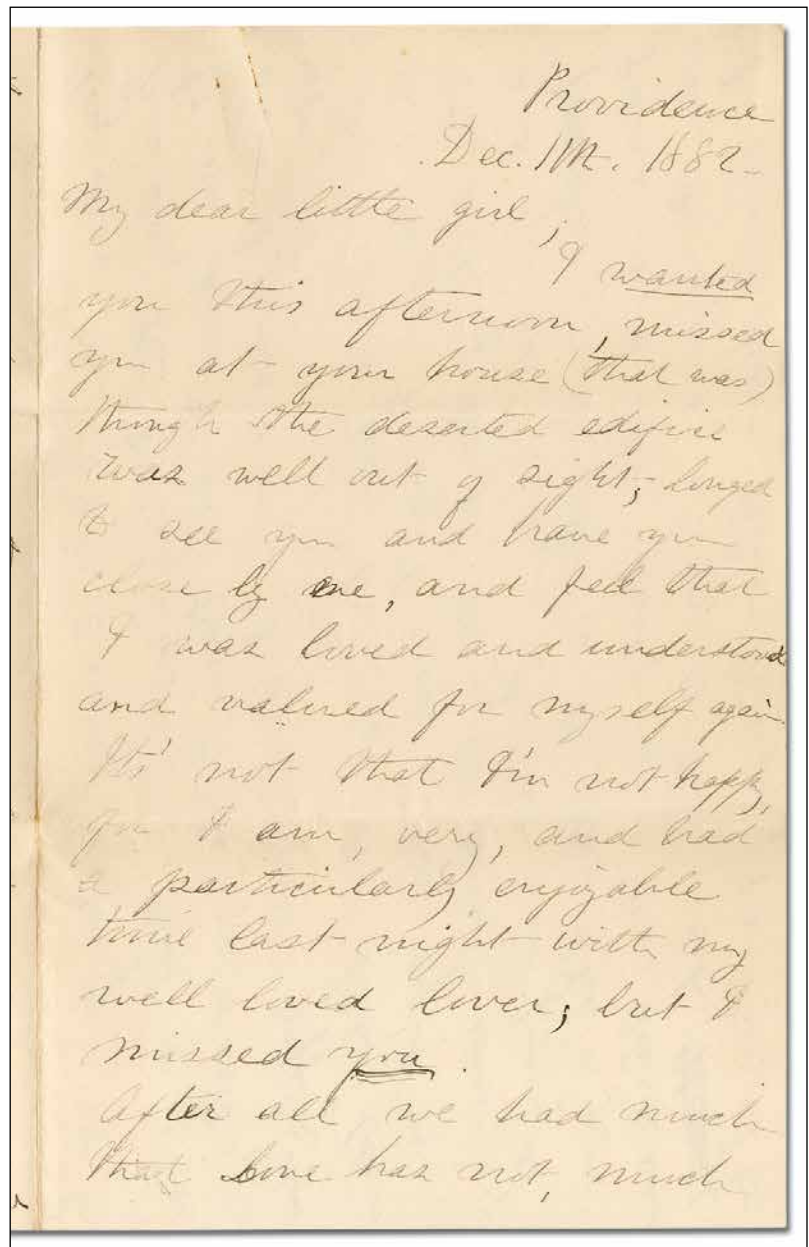 Providence
Dec. 11th. 1882.
My dear little girl,
I wanted
you this afternoon, missed
you at your house (that was)
though the deserted edifice
was well out of sight; longed
to see you and have you
close by me, and feel that
I was loved and understood
and valued for myself again.
Its' not that I'm not happy,
for I am, very, and had
a particularly enjoyable
time last night with my
well loved lover; but I
missed you.
After all we had much
that Love has not, much